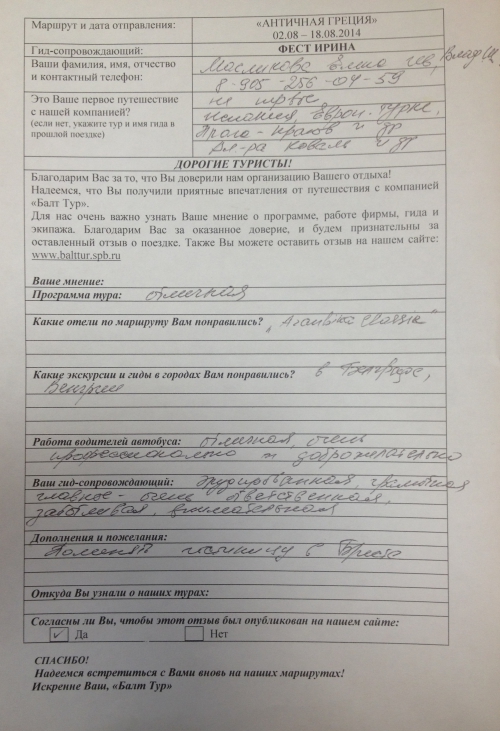 Маршрут и дата отправления: «АНТИЧНАЯ ГРЕЦИЯ»
02.08 – 18.08.2014
Гид-сопровождающий: ФЕСТ ИРИНА
Ваши фамилия, имя, отчество
и контактный телефон:
Масликова
8-905-256-04-59
Это Ваше первое путешествие
с нашей компанией?
(если нет, укажите тур и имя гида в
прошлой поездке)
не первое
Испания,
Прага - Краков и др
Ал-ра Коваль и др
ДОРОГИЕ ТУРИСТЫ!
Благодарим Вас за то, что Вы доверили нам организацию Вашего отдыха!
Надеемся, что Вы получили приятные впечатления от путешествия с компанией
«Балт Тур».
Для нас очень важно узнать Ваше мнение о программе, работе фирмы, гида и
экипажа. Благодарим Вас за оказанное доверие, и будем признательны за
оставленный отзыв о поездке. Также Вы можете оставить отзыв на нашем сайте:
www.balttur.spb.ru
Ваше мнение:
Программа тура: отличная
Какие отели по маршруту Вам понравились?
Какие экскурсии и гиды в городах Вам понравились? в Белграде,
Венгрии
Работа водителей автобуса: отличная, очень
профессионально и доброжелательно
Ваш гид-сопровождающий: эрудированная, грамотная
главное - очень ответственная,
заботливая, внимательная
Дополнения и пожелания:
Поменять гостиницу в Бресте
Откуда Вы узнали о наших турах:
Согласны ли Вы, чтобы этот отзыв был опубликован на нашем сайте:
✓ Да Нет
СПАСИБО!
Надеемся встретиться с Вами вновь на наших маршрутах!
Искренне Ваш, «Балт Тур»